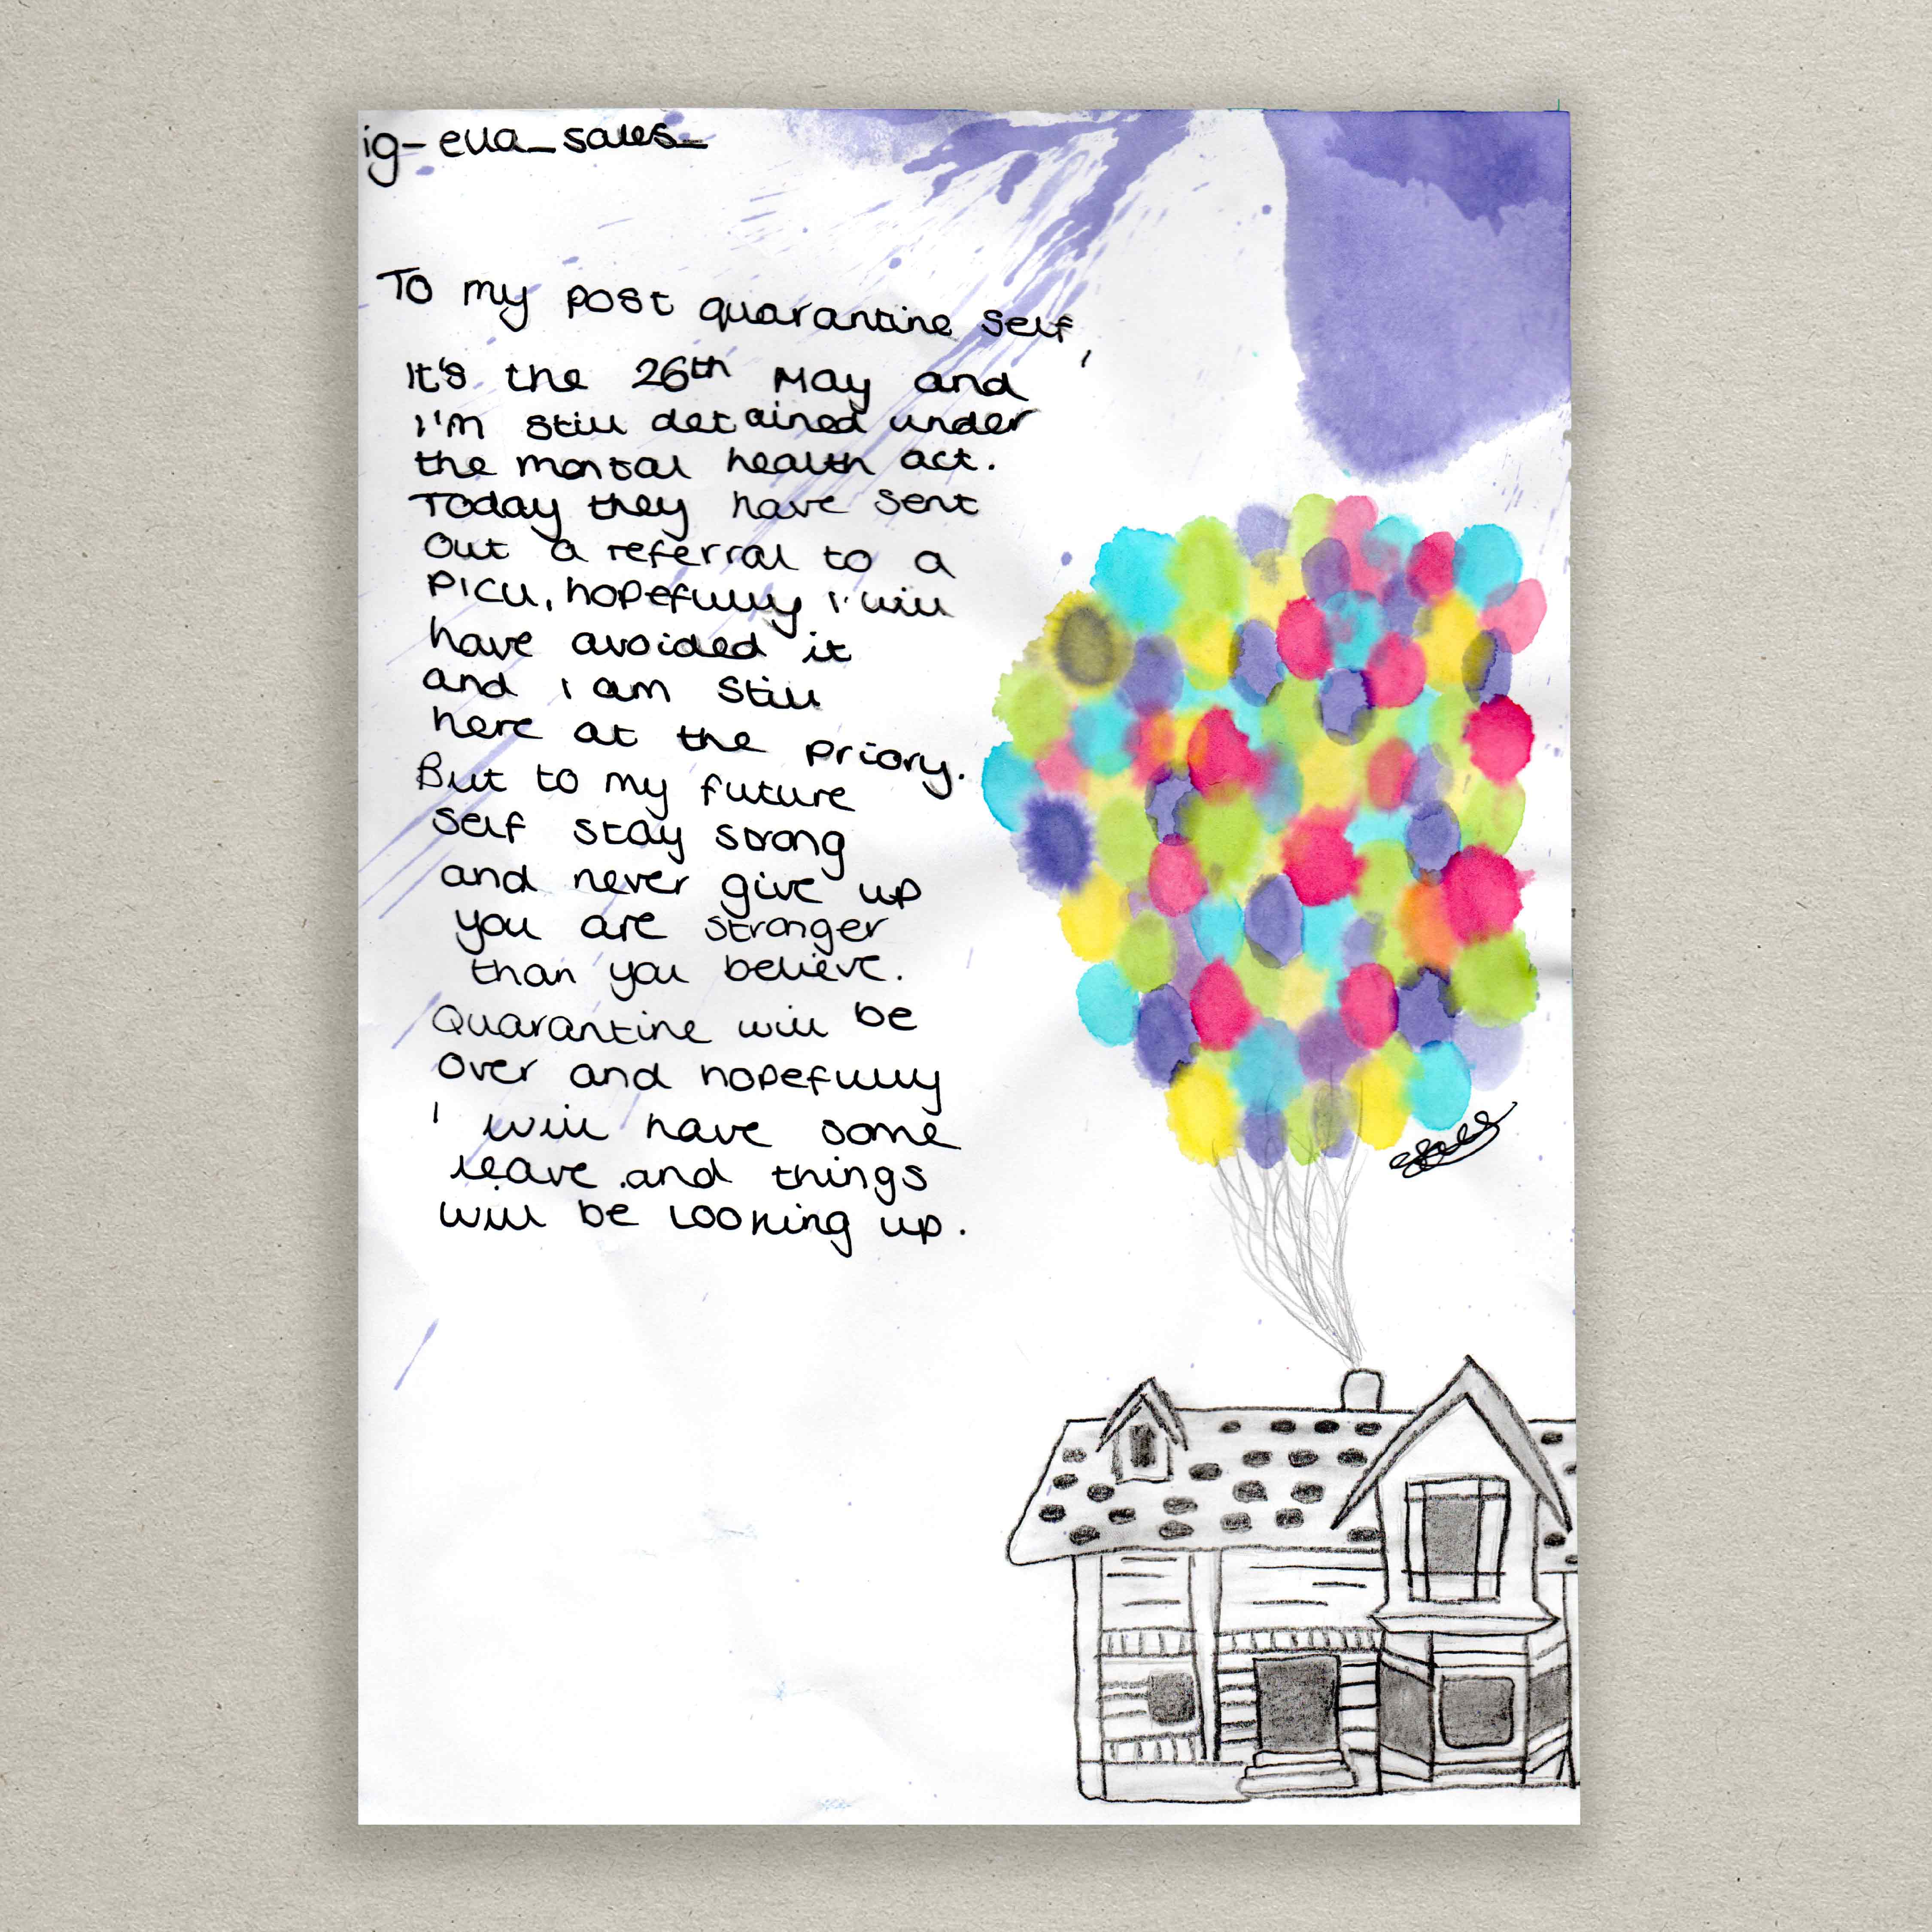 ig- ella_sales_
To my post quarantine self,
It's the 26th May and
I'm still detained under
the mental health act.
Today they have sent
out a referral to a
PICU, hopefully I will
have avoided it
and I am still
here at the priory.
But to my future
self stay strong
and never give up
you are stronger
than you believe.
Quarantine will be
over and hopefully
I will have some
leave and things
will be looking up.